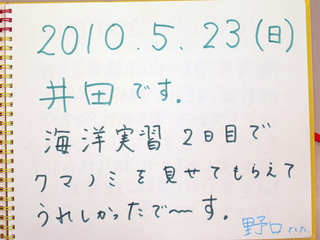 2010.5.23(日)
井田です。
海洋実習 2日目で
クマノミを見せてもらえて
うれしかったで〜す。
野口でした